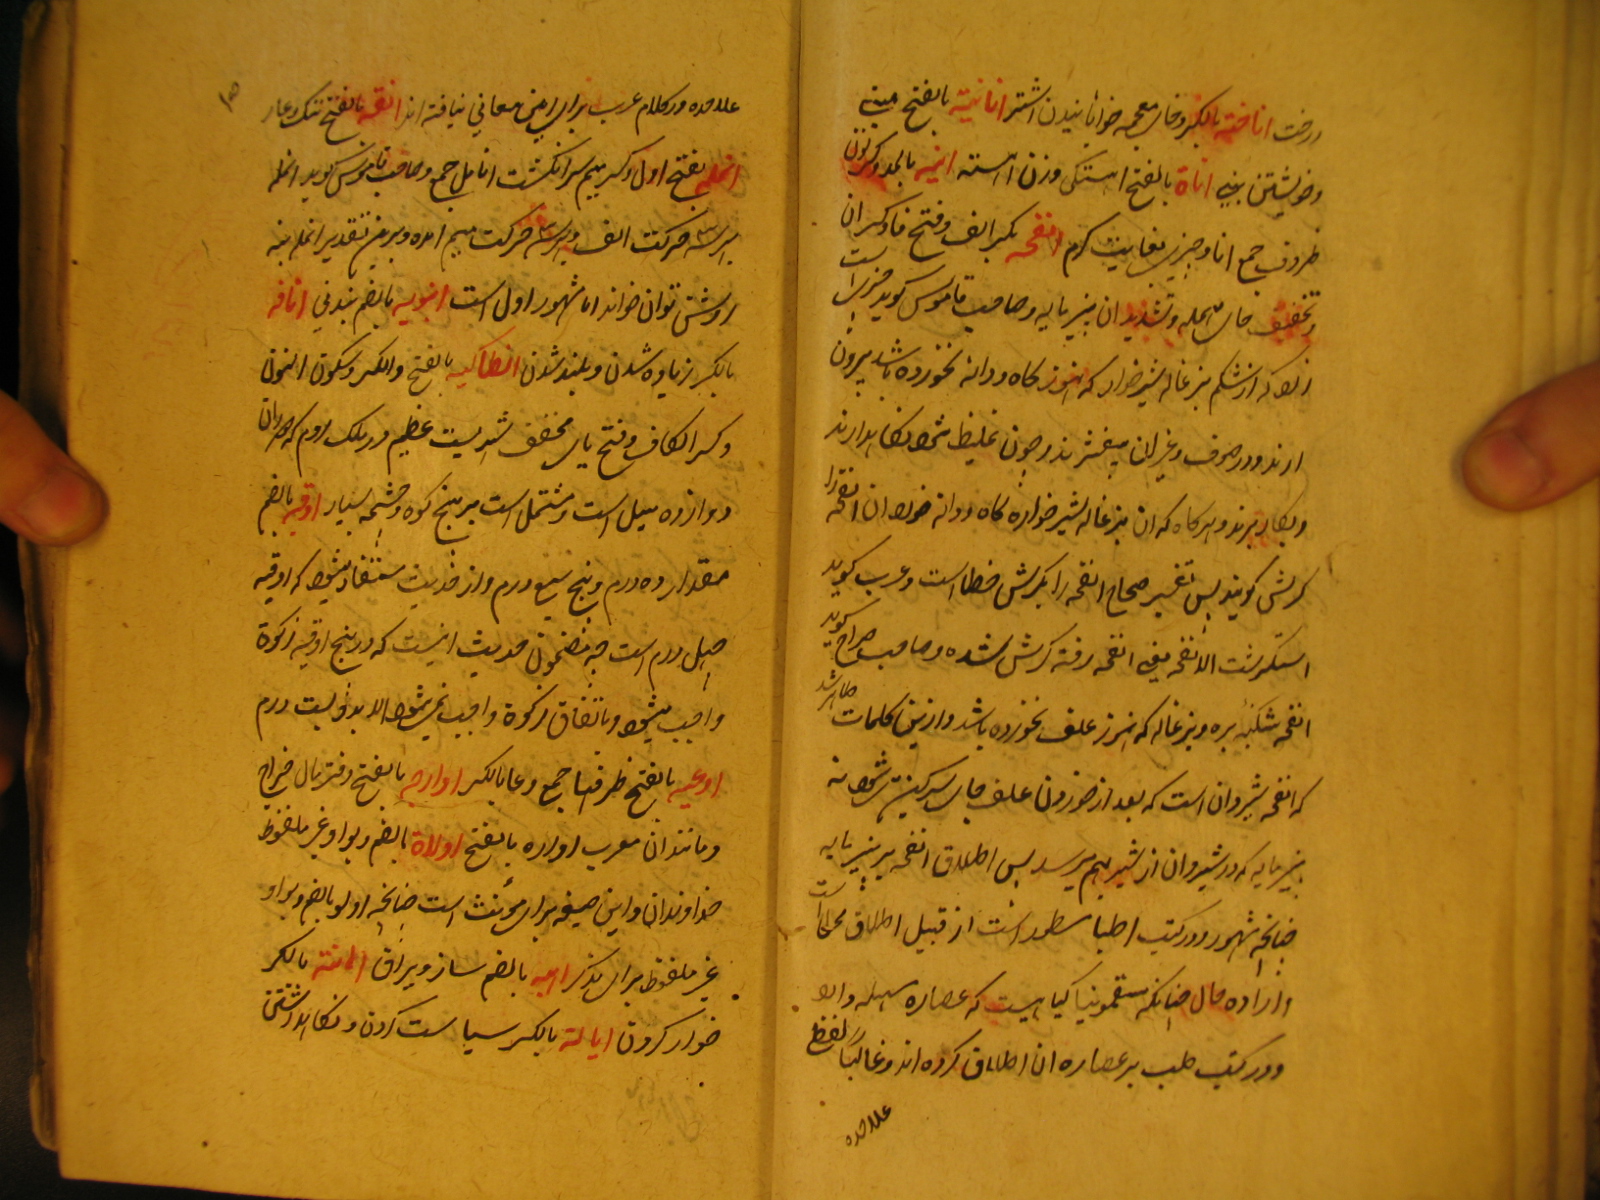 درخت اناخته بالکسر و خای معجمه خوابانیدن اشتر انانیته بالفتح منی
و خویشتن بینی اناة بالفتح آهستگی و زن آهسته انیه بالمد و کسر نون
ظروف جمع انا و چیزی بغایت گرم انفحه بکسر الف و فتح فا و کسر آن
و تخفیف حای مهمله و تشدید آن پنیر مایه و صاحب قاموس گوید چیزی است
زرد که از شکم بزغاله شیر خواره که هنوز کاه و دانه نخورده باشد بیرون
آرند و در صوف و غیر آن میفشرند و چون غلیظ شود نگاه دارند
و بکار برند و هر گاه که آن بزغاله شیر خواره کاه و دانه خورد آن انفحه را
کرش گویند پس تفسیر صحاح انفحه را بکرش خطا است و عرب گوید
استکرشت الانفحه یعنی انفحه رفته کرش شده و صاحب صراح گوید
انفحه شکنبه بره و بزغاله که هنوز علف نخورده باشد و ازین کلمات ظاهر شد
که انفحه شیردان است که بعد از خوردن علف جای سرگین شود نه
پنیر مایه که در شیردان از شیر بهم میرسد پس اطلاق انفحه بر پنیر مایه
چنانچه مشهور و در کتب اطبا مسطور است از قبیل اطلاق محل است
و اراده حال چنانکه سقمونیا گیاهیست که عصاره مسهله دارد
و در کتب طب بر عصاره آن اطلاق کرده اند و غالبا لفظ
علاحده
علاحده در کلام عرب برای این معانی نیافته اند انفه بالفتح ننگ و عار
انمله بفتح اول و کسر میم سر انگشت انامل جمع و صاحب قاموس گوید انمله
بهر سه حرکت الف و بهر سه حرکت میم آمده و برین تقدیر انمله بنه
روش توان خواند اما مشهور اول است انبوبه بالضم بندنی انافه
بالکسر زیاده شدن و بلند شدن انطاکیه بالفتح والکسر و سکون النون
و کسر الکاف و فتح یای مخفف شهریست عظیم در ملک روم که دوران
دوازده میل است و مشتمل است بر پنج کوه و چشمه بسیار اوقیه بالضم
مقدار ده درم و پنج سبع درم و از حدیث مستفاد میشود که اوقیه
چهل درم است چه مضمون حدیث اینست که در پنج اوقیه زکوة
واجب میشود و باتفاق زکوة واجب نمیشود الا بدویست درم
اوعیه بالفتح ظرفها جمع وعا بالکسر اوارجه بالفتح دفتر مال خراج
و مانند آن معرب اواره بالفتح اولاة بالضم و بواو غیر ملفوظ
خداوندان و این صیغه برای مؤنث است چنانچه اولو بالضم و بواو
غیر ملفوظ برای مذکر اهبه بالضم ساز و یراق اهانته بالکسر
خوار کردن ایالة بالکسر سیاست کردن و نگاهداشتن